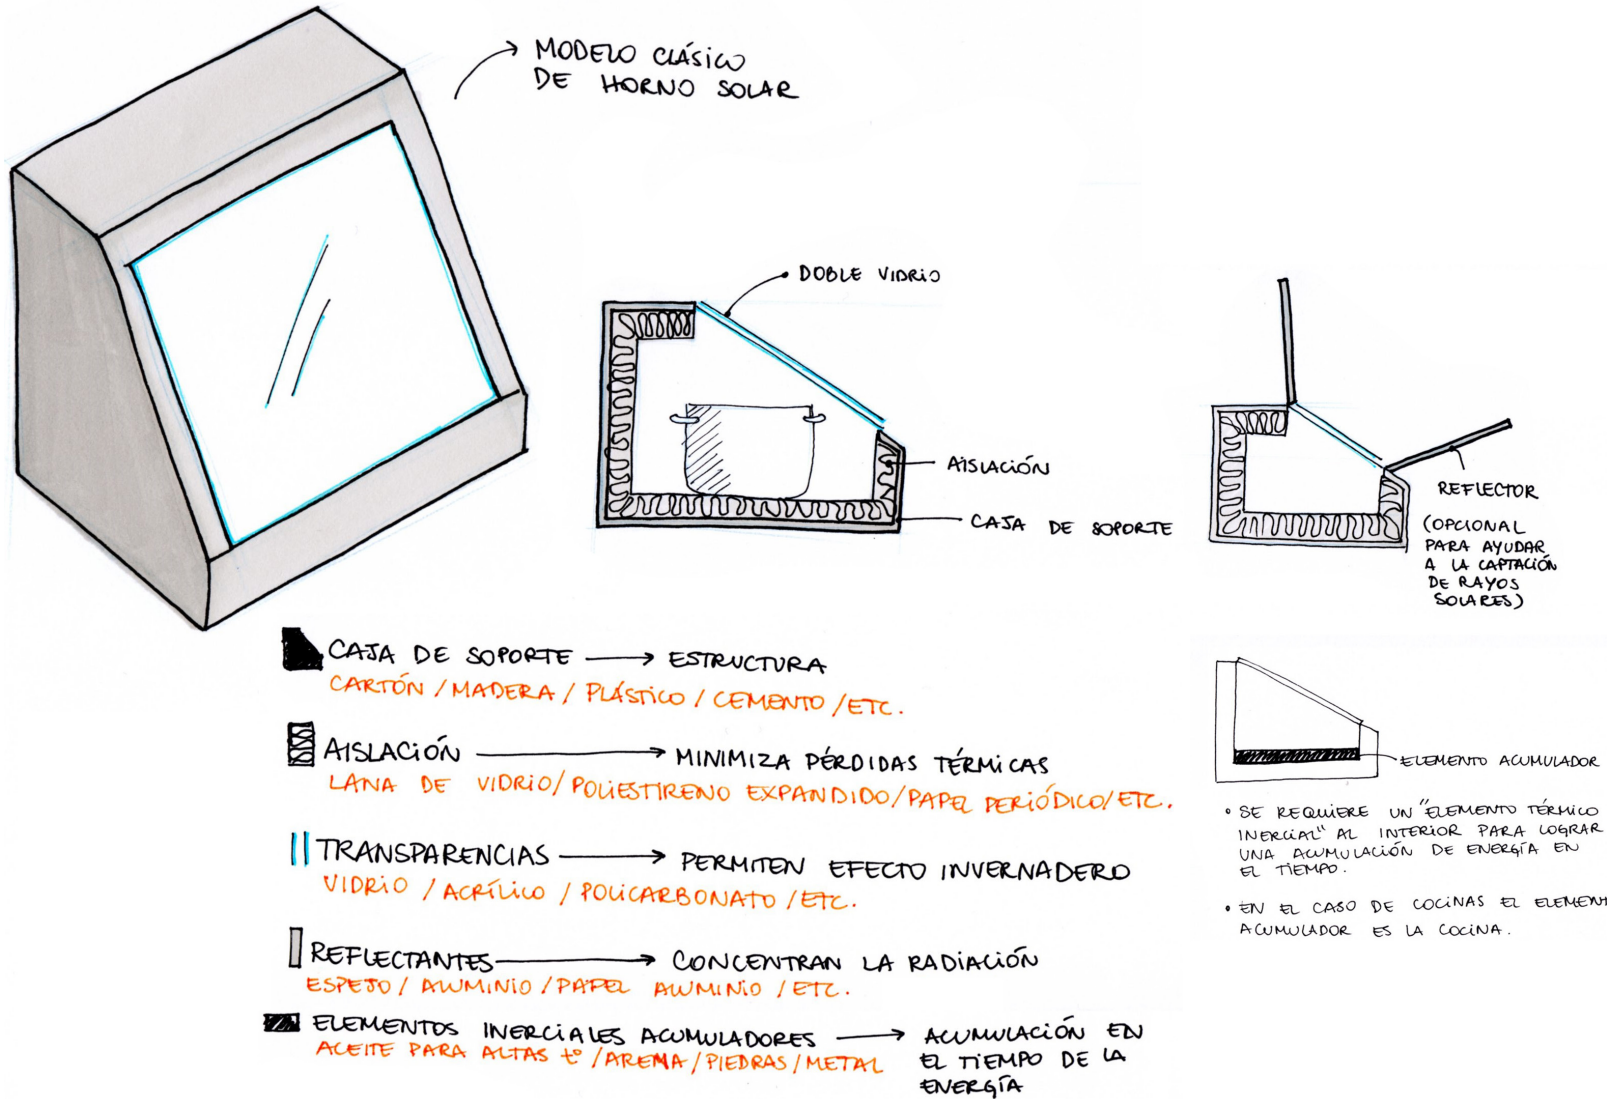 MODELO CLÁSICO
DE HORNO SOLAR
DOBLE VIDRIO
AISLACIÓN
CAJA DE SOPORTE
REFLECTOR
(OPCIONAL
PARA AYUDAR
A LA CAPTACIÓN
DE RAYOS
SOLARES)
CAJA DE SOPORTE → ESTRUCTURA
CARTÓN / MADERA / PLÁSTICO / CEMENTO / ETC.
AISLACIÓN → MINIMIZA PÉRDIDAS TÉRMICAS
LANA DE VIDRIO / POLIESTIRENO EXPANDIDO / PAPEL PERIÓDICO / ETC.
TRANSPARENCIAS → PERMITEN EFECTO INVERNADERO
VIDRIO / ACRÍLICO / POLICARBONATO / ETC.
REFLECTANTES → CONCENTRAN LA RADIACIÓN
ESPEJO / ALUMINIO / PAPEL ALUMINIO / ETC.
ELEMENTOS INERCIALES ACUMULADORES → ACUMULACIÓN EN
EL TIEMPO DE LA
ENERGÍA
ACEITE PARA ALTAS tº / ARENA / PIEDRAS / METAL
ELEMENTO ACUMULADOR
• SE REQUIERE UN "ELEMENTO TÉRMICO
INERCIAL" AL INTERIOR PARA LOGRAR
UNA ACUMULACIÓN DE ENERGÍA EN
EL TIEMPO.
• EN EL CASO DE COCINAS EL ELEMENT
ACUMULADOR ES LA COCINA.